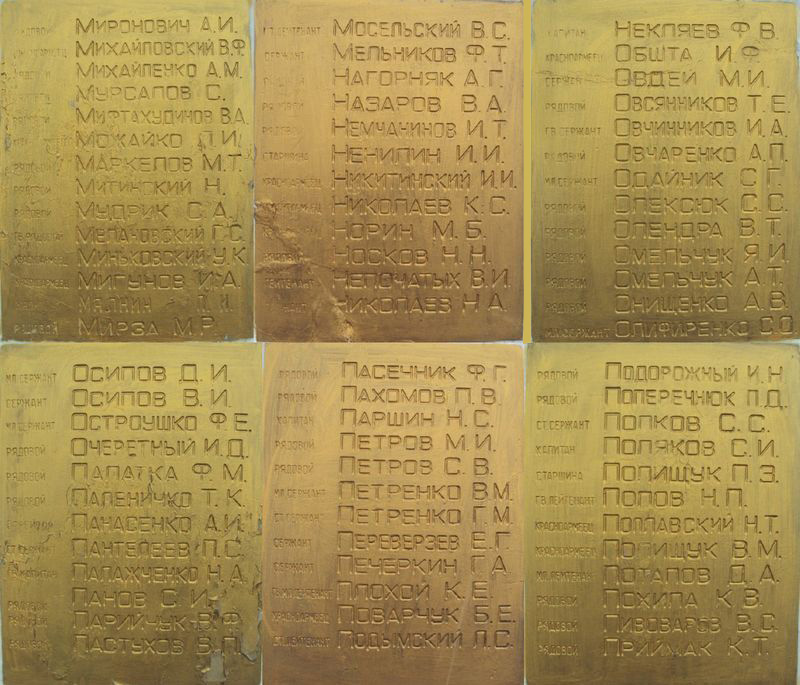 РЯДОВОЙ МИРОНОВИЧ А.И.
КРАСНОАРМЕЕЦ МИХАЙЛОВСКИЙ В.Ф.
РЯДОВОЙ МИХАЙЛЕНКО А.М.
МУРСАЛОВ С.
МИФТАХУДИНОВ В.А.
МОЖАЙКО П.И.
РЯДОВОЙ МАРКЕЛОВ М.Т.
РЯДОВОЙ МИТИНСКИЙ Н.
РЯДОВОЙ МУДРИК С.А.
ГВ.РЯДОВОЙ МЕЛАНОВСКИЙ Г.С.
КРАСНОАРМЕЕЦ МИНЬКОВСКИЙ У.К.
КРАСНОАРМЕЕЦ МИГУНОВ И.А.
МЯЛКИН И.
РЯДОВОЙ МИРЗА М.Р.
СТ.ЛЕЙТЕНАНТ МОСЕЛЬСКИЙ В.С.
СЕРЖАНТ МЕЛЬНИКОВ Ф.Т.
НАГОРНЯК А.Г.
РЯДОВОЙ НАЗАРОВ В.А.
РЯДОВОЙ НЕМЧАНИНОВ И.Т.
СТАРШИНА НЕЧИПИН И.И.
КРАСНОАРМЕЕЦ НИКИТИНСКИЙ И.И.
КРАСНОАРМЕЕЦ НИКОЛАЕВ К.С.
НОРИН М.Б.
РЯДОВОЙ НОСКОВ Н.Н.
ЛЕЙТЕНАНТ НЕПОЧАТЫХ В.И.
НИКОЛАЕВ Н.А.
КАПИТАН НЕКЛЯЕВ Ф.В.
КРАСНОАРМЕЕЦ ОБШТА И.Ф.
СЕРЖАНТ ОВДЕЙ М.И.
РЯДОВОЙ ОВСЯННИКОВ Т.Е.
ГВ.СЕРЖАНТ ОВЧИННИКОВ И.А.
РЯДОВОЙ ОВЧАРЕНКО А.П.
МЛ.СЕРЖАНТ ОДАЙНИК С.Г.
РЯДОВОЙ ОЛЕКСЮК С.С.
РЯДОВОЙ ОЛЕНДРА В.Т.
РЯДОВОЙ ОМЕЛЬЧУК Я.И.
РЯДОВОЙ ОМЕЛЬЧУК А.Т.
РЯДОВОЙ ОНИЩЕНКО А.В.
МЛ.СЕРЖАНТ ОЛИФИРЕНКО С.О.
МЛ.СЕРЖАНТ ОСИПОВ Д.И.
СЕРЖАНТ ОСИПОВ В.И.
МЛ.СЕРЖАНТ ОСТРОУШКО Ф.Е.
РЯДОВОЙ ОЧЕРЕТНЫЙ И.Д.
РЯДОВОЙ ПАЛАТКА Ф.М.
РЯДОВОЙ ПАЛЕНИЧКО Т.К.
ПАНАСЕНКО А.И.
СТ.СЕРЖАНТ ПАНТЕЛЕЕВ П.С.
КАПИТАН ПАЛАЖЧЕНКО Н.А.
РЯДОВОЙ ПАНОВ С.И.
РЯДОВОЙ ПАРИЙЧУК В.Ф.
РЯДОВОЙ ПАСТУХОВ В.П.
РЯДОВОЙ ПАСЕЧНИК Ф.Г.
РЯДОВОЙ ПАХОМОВ П.В.
КАПИТАН ПАРШИН Н.С.
РЯДОВОЙ ПЕТРОВ М.И.
РЯДОВОЙ ПЕТРОВ С.В.
МЛ.СЕРЖАНТ ПЕТРЕНКО В.М.
СТ.СЕРЖАНТ ПЕТРЕНКО Г.М.
СЕРЖАНТ ПЕРЕВЕРЗЕВ Е.Г.
СЕРЖАНТ ПЕЧЕРКИН Г.А.
ГВ.МЛ.ЛЕЙТЕНАНТ ПЛОХОЙ К.Е.
КРАСНОАРМЕЕЦ ПОВАРЧУК Б.Е.
СТ.ЛЕЙТЕНАНТ ПОДЫМСКИЙ Л.С.
РЯДОВОЙ ПОДОРОЖНЫЙ И.Н.
РЯДОВОЙ ПОПЕРЕЧНЮК П.Д.
СТ.СЕРЖАНТ ПОПКОВ С.С.
КАПИТАН ПОЛЯКОВ С.И.
СТАРШИНА ПОЛИЩУК П.З.
ГВ.ЛЕЙТЕНАНТ ПОПОВ Н.П.
КРАСНОАРМЕЕЦ ПОПЛАВСКИЙ Н.Т.
КРАСНОАРМЕЕЦ ПОЛИЩУК В.М.
МЛ.ЛЕЙТЕНАНТ ПОТАПОВ Д.А.
РЯДОВОЙ ПОХИЛА К.В.
РЯДОВОЙ ПИВОВАРОВ В.С.
РЯДОВОЙ ПРИЙМАК К.Т.